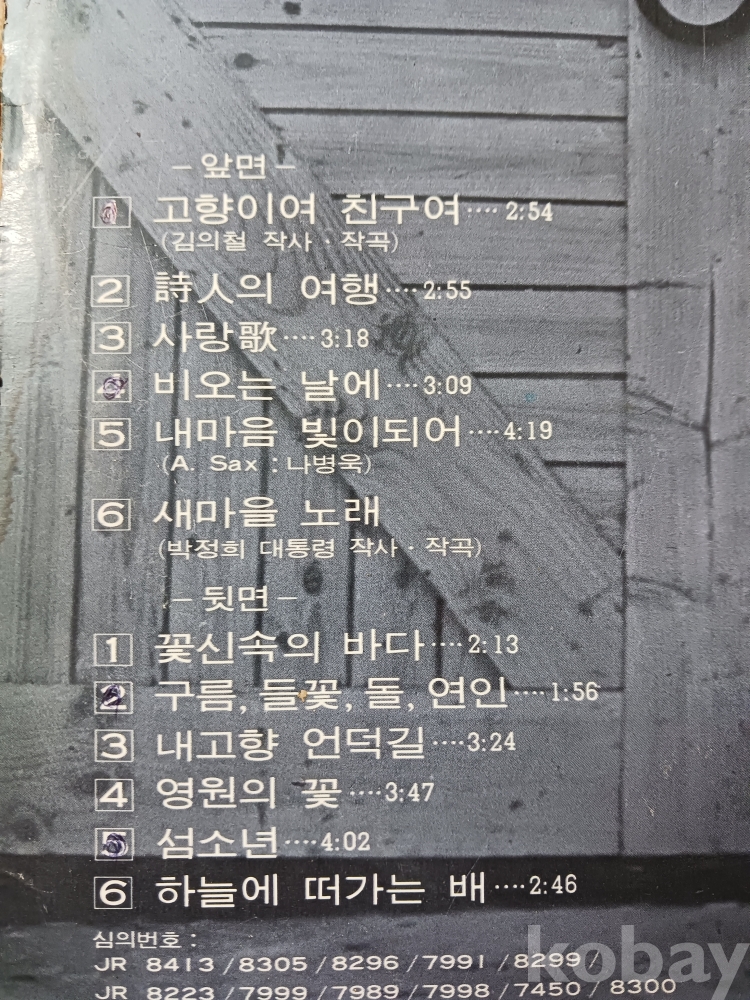 －앞면－
1 고향이여 친구여····2:54
(김의철 작사·작곡)
2 詩人의 여행····2:55
3 사랑歌····3:18
4 비오는 날에····3:09
5 내마음 빛이되어····4:19
(A. Sax : 나병욱)
6 새마을 노래
(박정희 대통령 작사·작곡)
－뒷면－
1 꽃신속의 바다····2:13
2 구름, 들꽃, 돌, 연인····1:56
3 내고향 언덕길····3:24
4 영원의 꽃····3:47
5 섬소년····4:02
6 하늘에 떠가는 배····2:46
심의번호 :
JR 8413 / 8305 / 8296 / 7991 / 8299 /
JR 8223 / 7999 / 7989 / 7998 / 7450 / 8300
kobay